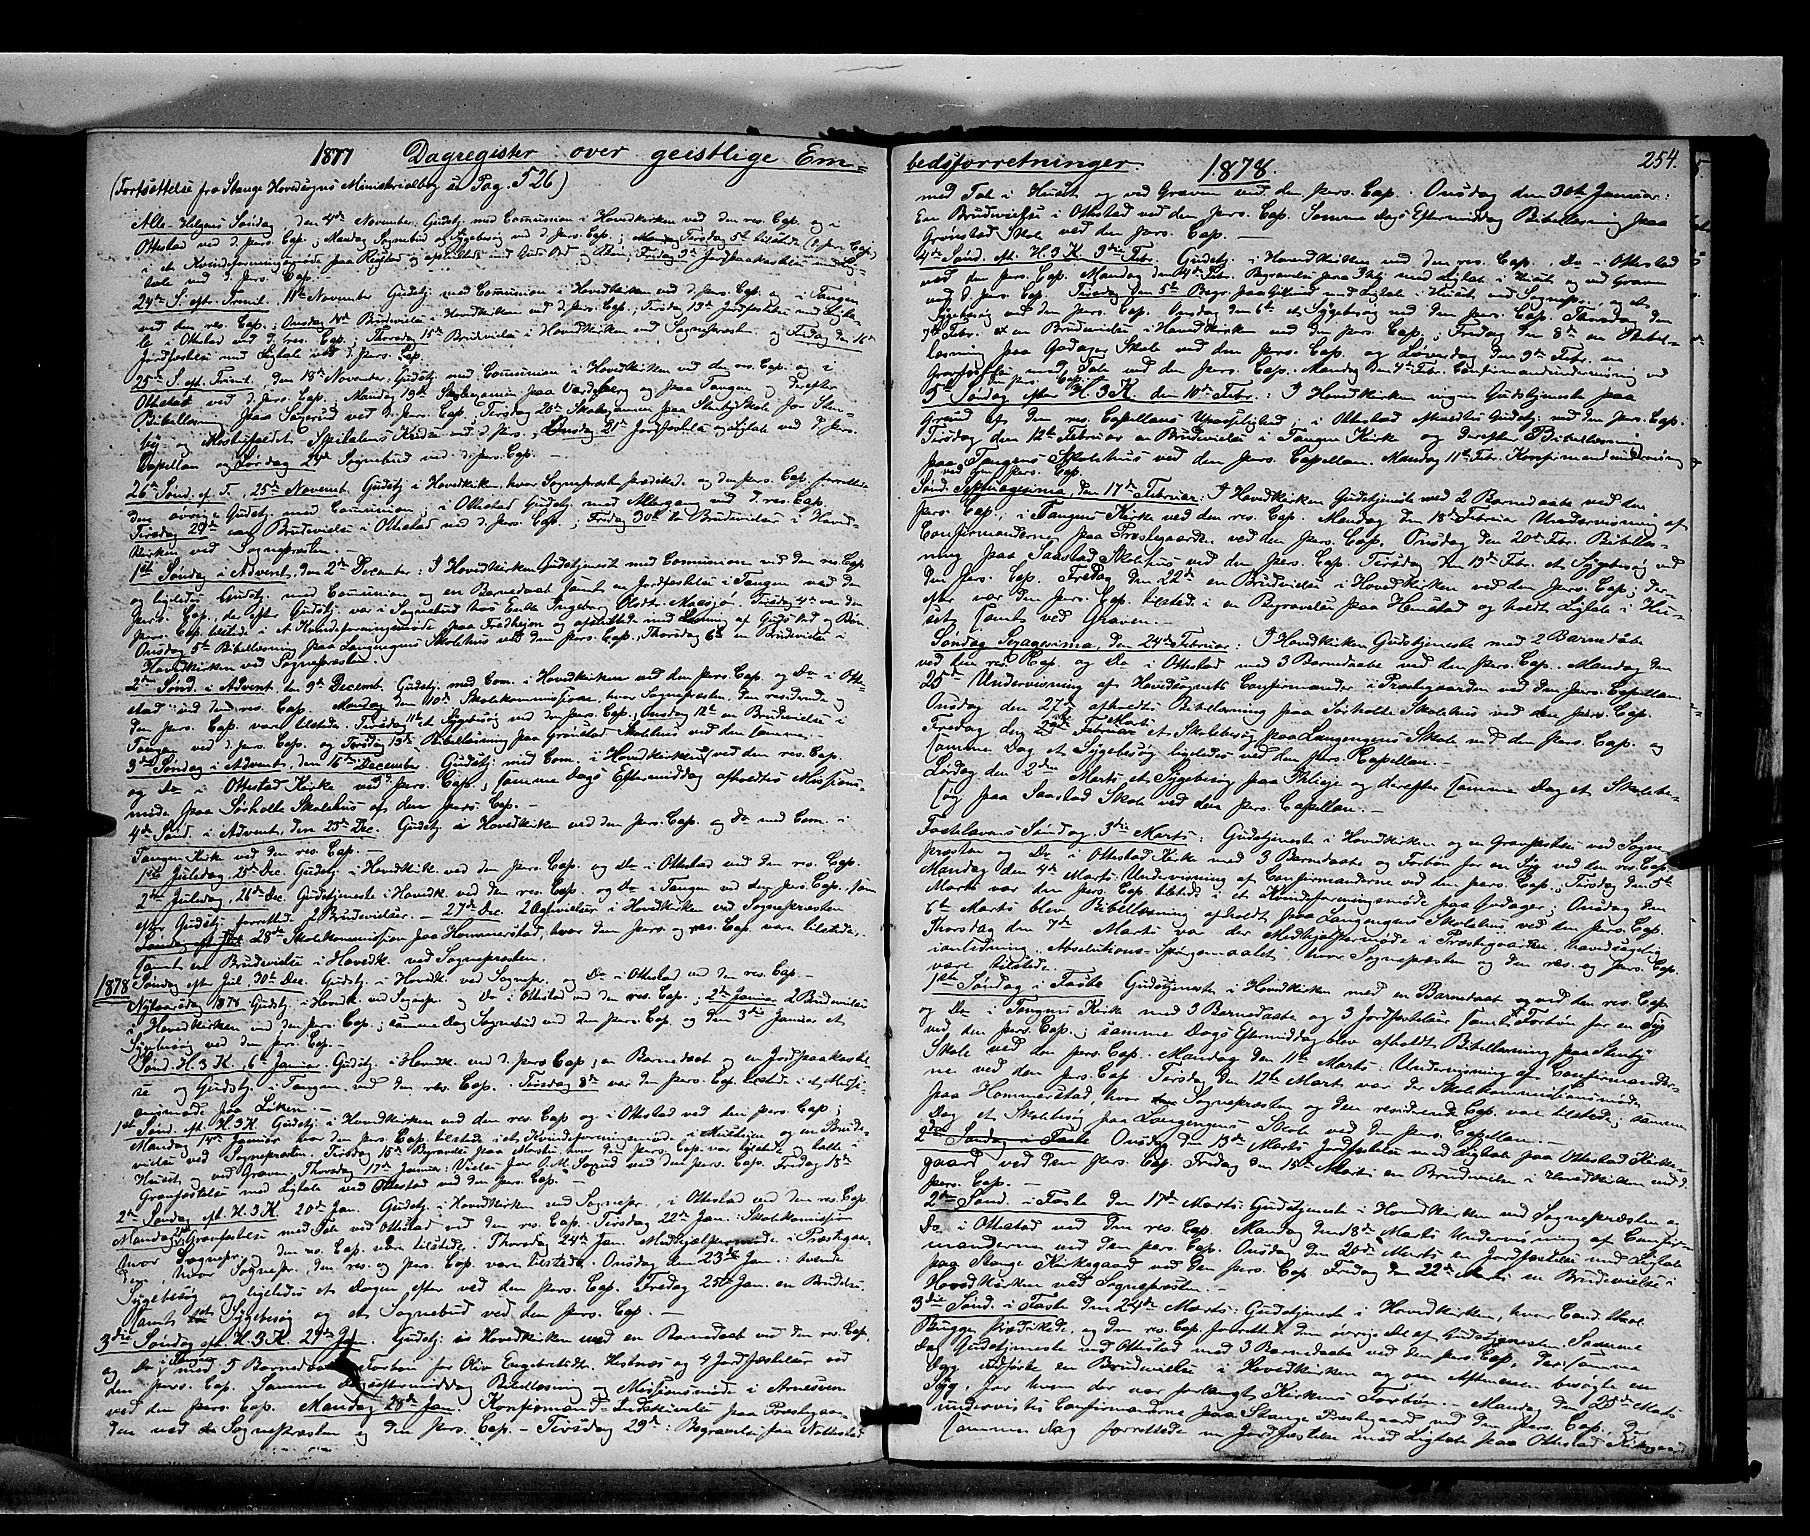 1877 Dagregister over geistlige Em-
(Fortsættelse fra Stange Hovedsogns Ministerialbog Pag. 526)
Alle Helgens Søndag den 4de November. Gudstj. med Communion i Hovedkirken ved den res. Cap. og i
Ottestad ved d. pers. Cap.; Mandag Sognebud og Sygebesøg ved d. pers. Cap.; Tirsdag 5te tilstede (d. pers. Cap.)
i et Kvindeforeningsmøde paa
tale ved d. pers. Cap.
24de S. eft. Trinit. 11te November Gudstj. med Communion i Hovedkirken ved d. pers. Cap. og i Tangen
ved den res. Cap.; Onsdag 14de Brudevielse i Hovedkirken ved d. pers. Cap.,
i Ottestad ved d. res. Cap.; Thorsdag 15de Brudevielse i Hovedkirken ved Sognepræsten og Fredag den 16de
Jordfæstelse med Ligtale ved d. pers. Cap.
25de S. eft. Trinit., den 18de November. Gudstj. med Communion i Hovedkirken ved den res. Cap. og i
Ottestad ved d. pers. Cap.; Mandag 19de Skoleexamen paa Vardeberg og paa Tangen og derefter
Bibellæsning paa Sørerud ved d. pers. Cap.; Tirsdag 20de Skoleexamen paa Stenbyskole for Sten-
by- og Kirke ved d. pers., Onsdag 21de Jordfæstelse og Ligtale ved d. pers.
Capellan og Lørdag 24de Sognebud ved d. pers. Cap.
26de Sønd. ef. T., 25de Novembr. Gudstj. i Hovedkirken, hvor Sognepræsten prædikede og den pers. Cap. forrettede
den øvrige Gudstj. med Communion; i Ottestad Gudstj. med Altergang ved d. res. Cap.
Torsdag 29de en Brudevielse i Ottestad ved d. pers. Cap.; Fredag 30te to Brudevielser i Hoved-
kirken ved Sognepræsten.
1ste Søndag i Advent, den 2den December: I Hovedkirken Gudstjeneste med Communion ved den res. Cap.
og ligeledes Gudstj. med Communion og en Barnedaab samt en Jordfæstelse i Tangen ved den
pers. Cap., der efter Gudstj. var i Sognebud hos Enke Ingeborg Tirsdag 4de var den
pers. Cap. tilstede i et Kvindeforeningsmøde paa Fredheim og afsluttet med Læsning af Guds Ord og Bøn.
Onsdag 5te Bibellæsning paa Langengens Skolehus ved den pers. Cap., Thorsdag 6te en Brudevielse i
Hovedkirken ved Sognepræsten.
2den Sønd. i Advent den 9de Decemb. Gudstj. med Com. i Hovedkirken ved den pers. Cap. og Do i Otte-
stad ved den res. Cap. Mandag den 10de Skolekommission hvor Sognepræsten, den residerende og
den pers. Cap. vare tilstede. Tirsdag 11te et Sygebesøg ved den pers. Cap.; Onsdag 12te en Brudevielse i
Tangen ved d. pers. Cap. og Torsdag 13de Bibellæsning paa Grønstad Skolehus ved den samme.
3die Søndag i Advent, den 16de December. Gudstj. med Com. i Hovedkirken ved den res. Cap.
og Do i Ottestad Kirke ved d. pers. Cap.; samme Dags Eftermiddag afholdtes Missions-
møde paa Sørholte Skolehus af den pers. Cap.
4de Sønd. i Advent, den 23de Dec. Gudstj. i Hovedkirken ved den pers. Cap. og Do med Com. i
Tangen Kirke ved den res. Cap.
1ste Juledag, 25de Dec. Gudstj. i Hovedkirk. ved den pers. Cap. og Do i Ottestad ved den res. Cap.
2den Juledag, 26de Dec. Gudstjeneste i Hovedk. ved den res. Cap. og Do i Tangen ved den pers. Cap. som
efter Gudstj. forrettede 2 Brudevielser. 27de Dec. 2 Ægtevielser i Hovedkirken ved Sognepræsten.
28de Skolekommission paa Hommerstad, hvor den pers. og res. Cap. vare tilstede.
samt en Brudevielse i Hovedk. ved Sognepræsten.
1878 Søndag efter Jul 30te Dec. Gudstj. i Hovedk. ved Sognepr. og Do i Ottestad ved den res. Cap.
Nytaarsdag 1878 Gudstj. i Hovedk. ved Sognepr. og Do i Ottestad ved den res. Cap.; 2den Januar 2 Brudevielser
i Hovedkirken ved den pers. Cap.; samme Dag Sognebud ved den pers. Cap. og den 3die Januar et
Sygebesøg ved den pers. Cap.
Sønd. H. 3 K. 6te Januar. Gudstj. i Hovedk. ved d. pers. Cap., en Barnedaab og en Jordpaakastel-
se og Gudstj. i Tangen ved den res. Cap. Tirsdag 8de var den pers. Cap. tilstede i et Missi-
onsmøde paa Liken.
1ste Sønd. eft. H. 3 K. Gudstj. i Hovedkirken ved den res. Cap. og i Ottestad ved den pers. Cap.;
Mandag 14de Januar var den pers. Cap. tilstede i et Kvindeforeningsmøde i og en Brude-
vielse ved Sognepræsten. Tirsdag 15de Begravelse paa hvor den pers. Cap. var tilstede og talte i
Huset og ved Graven. Thorsdag 17de Januar: Vielse ved den pers. Cap. Fredag 18de
Gravfæstelse med Ligtale ved Ottestad ved den pers. Cap.
2den Søndag eft. H. 3 K. 20de Jan. Gudstj. i Hovedkirken ved Sognepr., i Ottestad ved den res. Cap.
Mandag 21de Gravfæstelse med Tale ved Ottestad ved den res. Cap. Tirsdag 22de Jan. Skolekommission
hvor Sognepr. og den res. Cap. vare tilstede. Thorsdag 24de Jan. Medhjælpermøde i Præstegaar-
den, hvor Sognepr., den res. og pers. Cap. vare tilstede. Onsdag den 23de Jan. tvende
Sygebesøg og ligeledes et Dagen efter ved den pers. Cap. Fredag 25de Jan. en Brudevielse
samt et Sygebesøg og et Sognebud ved den pers. Cap.
3die Søndag eft. H. 3 K. Gudstj. i Hovedkirken med en Barnedaab ved den res. Cap.
og Do i Tangen med 5 Barnedaab Forbøn for Oliv Engebretsdt. Hestnæs og 4 Jordfæstelser ved
den pers. Cap. Samme Dags Eftermiddag Bibellæsning og Missionsmøde i Arnesveen
ved den pers. Cap. Mandag 28de Jan. Konfirmand-Indskrivelse paa Præstegaar-
den ved Sognepræsten og den pers. Cap. Tirsdag 29de: Begravelse paa
bedsforretninger. 1878. 254.
med Tale i Huset og ved Graven ved den pers. Cap. Onsdag den 30te Januar:
En Brudevielse i Ottestad ved den pers. Cap. Samme Dags Eftermiddag Bibellæsning paa
Grønstad Skole ved den pers. Cap.
4de Sønd. eft. H. 3 K. 3die Febr. Gudstj. i Hovedkirken ved den res. Cap., Do i Ottestad
ved den pers. Cap. Mandag den 4de Febr. Begravelse paa med Ligtale i Huset og ved Graven
ved d. pers. Cap. Tirsdag den 5te Begr. paa Gillund med Ligtale i Huset ved Sognepr., og et
Sygebesøg ved den pers. Cap. Onsdag den 6te et Sygebesøg ved den pers. Cap. Thorsdag den
7de Febr. en Brudevielse i Hovedkirken ved den pers. Cap.; Fredag den 8de en Bibel-
læsning paa Godager Skole ved den pers. Cap. og Løverdag den 9de Febr. en
Gravfæstelse med Tale ved den pers. Cap. Mandag den 4de Febr. Confirmandundervisning ved
den pers. Cap.
5te Søndag efter H. 3 K. den 10de Febr.: I Hovedkirken ingen Gudstjeneste paa
Grund af den res. Capellans Upasselighed, i Ottestad afholdtes Gudstj. ved den pers. Cap.
Tirsdag den 12te Februar en Brudevielse i Tangen Kirke og derefter Bibellæsning
paa Tangens Skolehus ved den pers. Capellan. Mandag 11te Febr. Konfirmandundervisning
ved den pers. Cap.
Sønd. Septuagesima, den 17de Februar: I Hovedkirken Gudstjeneste med 2 Barnedaab ved den
pers. Cap., i Tangens Kirke ved den res. Cap. Mandag den 18de Februar Undervisning af
Confirmanderne paa Præstegaarden ved den pers. Cap. Onsdag den 20de Febr. Bibellæs-
ning paa Saastad Skolehus ved den pers. Cap. Tirsdag den 19de Febr. et Sygebesøg ved
den pers. Cap. Fredag den 22de en Brudevielse i Hovedkirken ved den pers. Cap.; der-
efter var den pers. Cap. tilstede i en Begravelse paa Hemstad og holdt Ligtale i Hu-
set samt ved Graven.
Søndag Sexagesima, den 24de Februar: I Hovedkirken Gudstjeneste med 2 Barnedaab
ved den res. Cap. og Do i Ottestad med 3 Barnedaab ved den pers. Cap. Mandag den
25de Undervisning af Hovedsognets Confirmander i Præstegaarden ved den pers. Capellan.
Onsdag den 27de afholdtes Bibellæsning paa Sørholte Skolehus ved den pers. Cap.
Fredag den Marts et Skolebesøg paa Langengens Skole ved den pers. Cap. og
samme Dag et Sygebesøg ligeledes ved den pers. Capellan.
Lørdag den 2den Marts et Sygebesøg paa og derefter samme Dag et Skolebe-
søg paa Saastad Skole ved den pers. Capellan.
Fastelavens Søndag, 3die Marts: Gudstjeneste i Hovedkirken og en Gravfæstelse ved Sogne-
præsten og Do i Ottestad Kirke med 3 Barnedaab og Forbøn for en Syg ved den res. Cap.
Mandag den 4de Marts: Undervisning af Confirmanderne ved den pers. Cap.; Tirsdag den 5te
Marts var den pers. Cap. tilstede i et Kvindeforeningsmøde paa Godager; Onsdag den
6te Marts blev Bibellæsning afholdt paa Langengens Skolehus ved den pers. Cap.
Thorsdag den 7de Marts var der Medhjælpermøde i Præstegaarden, navnlig
i anledning Absolutions-Spørgsmaalet, hvor Sognepræsten og den res. og pers. Cap.
vare tilstede.
1ste Søndag i Faste Gudstjeneste i Hovedkirken med en Barnedaab ved den res. Cap.
og Do i Tangens Kirke med 3 Barnedaab og 3 Jordfæstelser samt Forbøn for en Syg
ved den pers. Cap.; samme Dags Eftermiddag blev afholdt Bibellæsning paa Stenby
Skole ved den pers. Cap. Mandag den 11te Marts: Undervisning af Confirmander-
ne ved den pers. Cap. Tirsdag den 12te Marts var der Skolekommissionsmøde
paa Hommerstad, hvor Sognepræsten og den residerende Cap. vare tilstede; samme
Dag et Skolebesøg paa Langengens Skole ved den pers. Capellan.
2den Søndag i Faste Onsdag den 13de Marts Jordfæstelse med Ligtale paa Ottestad Kirke-
gaard ved den pers. Cap. Fredag den 15de Marts: en Brudevielse i Hovedkirken ved d.
pers. Cap.
2den Sønd. i Faste den 17de Marts: Gudstjeneste i Hovedkirken ved Sognepræsten og
Do i Ottestad ved den res. Cap. Mandag den 18de Marts Undervisning af Confir-
manderne ved den pers. Cap. Onsdag den 20de Marts en Jordfæstelse med Ligtale
paa Stange Kirkegaard ved den pers. Cap. Fredag den 22de Marts en Brudevielse i
Hovedkirken ved Sognepræsten.
3die Sønd. i Faste den 24de Marts: Gudstjeneste i Hovedkirken, hvor Cand. theol.
Brügger prædikede, og den res. Cap. forrettede den øvrige Del af Gudstjenesten. Samme
Dag Gudstjeneste ved Ottestad med 3 Barnedaab ved den pers. Cap., der samme
Dag udførte en Brudevielse i Hovedkirken og om Aftenen besøgte en
Syg, for hvem der var forlangt Kirkens Forbøn. Mandag den 25de Marts
undervistes Confirmanderne paa Stange Præstegaard ved den pers. Cap., der
samme Dag forrettede en Jordfæstelse med Ligtale paa Ottestad Kirkegaard